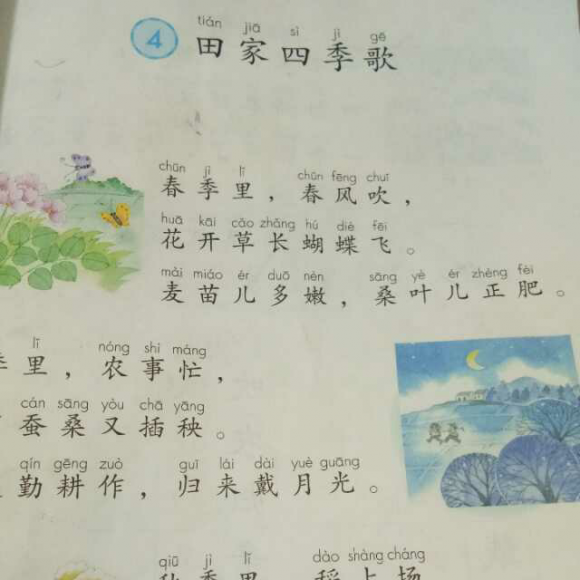 tián jiā sì jì gē
4 田家四季歌
chūn jì lǐ chūn fēng chuī
春季里，春风吹，
huā kāi cǎo zhǎng hú dié fēi
花开草长蝴蝶飞。
mài miáo ér duō nèn sāng yè ér zhèng féi
麦苗儿多嫩，桑叶儿正肥。
lǐ nóng shì máng
季里，农事忙，
cán sāng yòu chā yāng
蚕桑又插秧。
qín gēng zuò guī lái dài yuè guāng
勤耕作，归来戴月光。
qiū jì lǐ dào shàng cháng
秋季里，稻上场